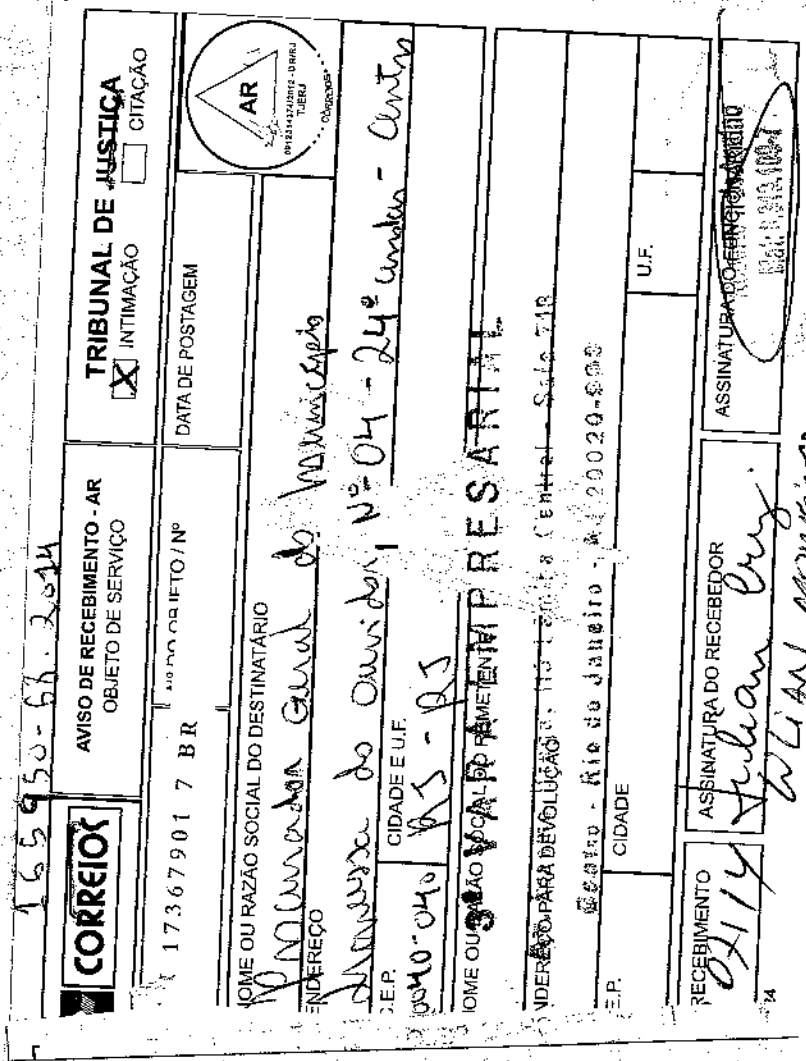 165950-68.2014
CORREIOS
AVISO DE RECEBIMENTO - AR
OBJETO DE SERVIÇO
TRIBUNAL DE JUSTIÇA
X INTIMAÇÃO
CITAÇÃO
17367901 7 BR
DATA DE POSTAGEM
AR
9912314374/2012 - DR/RJ
TJERJ
CORREIOS
NOME OU RAZÃO SOCIAL DO DESTINATÁRIO
Procurador Geral do Município
ENDEREÇO
Travessa do Ouvidor, Nº 04 - 24º andar - Centro
C.E.P.
20040-040
CIDADE E U.F.
RJ - RJ
NOME OU RAZÃO SOCIAL DO REMETENTE
3ª VARA EMPRESARIAL
ENDEREÇO PARA DEVOLUÇÃO
Central - Sala 718
Centro - Rio de Janeiro - RJ 20020-
C.E.P.
CIDADE
U.F.
RECEBIMENTO
ASSINATURA DO RECEBEDOR
Cruz
ASSINATURA DO FUNCIONÁRIO